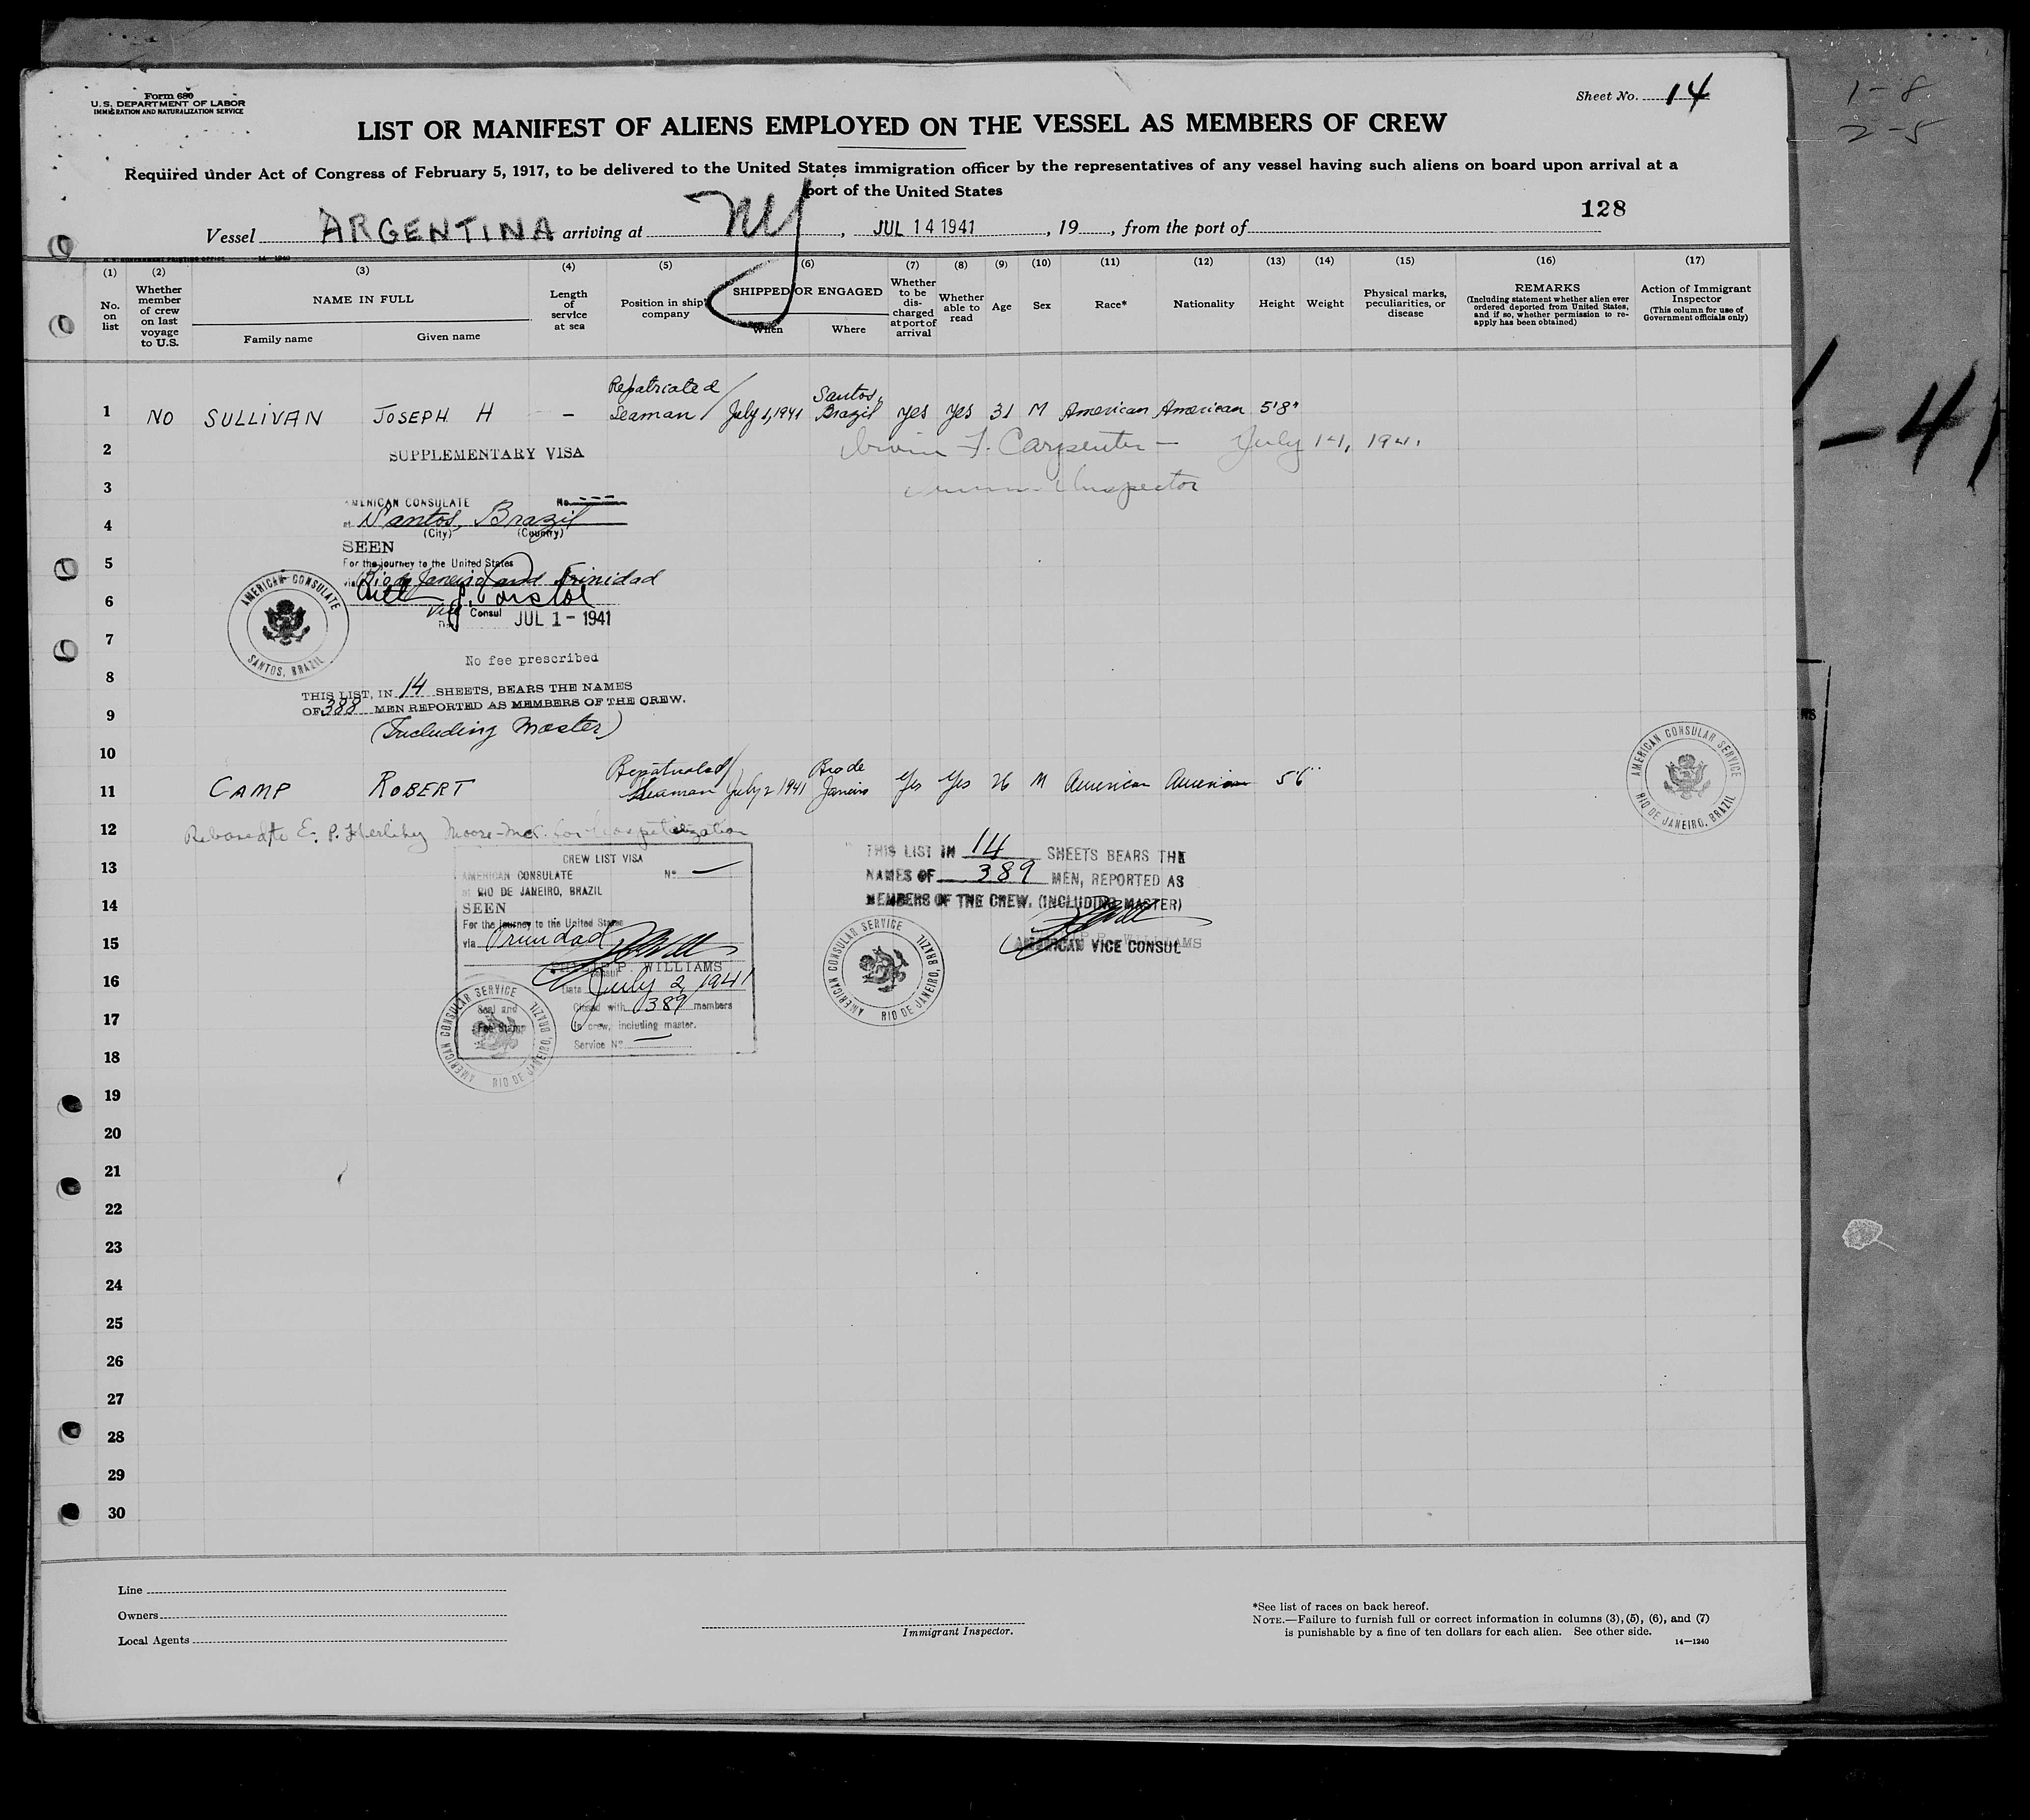 Form 680
U. S. DEPARTMENT OF LABOR
IMMIGRATION AND NATURALIZATION SERVICE
Sheet No. 14
1-8
2-5
LIST OR MANIFEST OF ALIENS EMPLOYED ON THE VESSEL AS MEMBERS OF CREW
Required under Act of Congress of February 5, 1917, to be delivered to the United States immigration officer by the representatives of any vessel having such aliens on board upon arrival at a
port of the United States
128
Vessel ARGENTINA arriving at NY, JUL 14 1941, 19, from the port of
(1) (2) (3) (4) (5) (6) (7) (8) (9) (10) (11) (12) (13) (14) (15) (16) (17)
No. on list
Whether member of crew on last voyage to U.S.
NAME IN FULL
Family name Given name
Length of service at sea
Position in ship's company
SHIPPED OR ENGAGED
When Where
Whether to be discharged at port of arrival
Whether able to read
Age
Sex
Race*
Nationality
Height
Weight
Physical marks, peculiarities, or disease
REMARKS
(Including statement whether alien ever ordered deported from United States, and if so, whether permission to re-apply has been obtained)
Action of Immigrant Inspector
(This column for use of Government officials only)
1 NO SULLIVAN JOSEPH H – Repatriated Seaman / July 1, 1941 Santos, Brazil yes yes 31 M American American 5'8"
2 F. Carpenter – July 14, 1941
SUPPLEMENTARY VISA
3 Inspector
AMERICAN CONSULATE No. ---
4 at Santos, Brazil
(City) (Country)
SEEN
5 For the journey to the United States
via Rio de Janeiro and Trinidad
6
Vice Consul
Date JUL 1 - 1941
AMERICAN CONSULATE
SANTOS, BRAZIL
7
No fee prescribed
8
THIS LIST, IN 14 SHEETS, BEARS THE NAMES
9 OF 388 MEN REPORTED AS MEMBERS OF THE CREW.
(Including Master)
10
11 CAMP ROBERT Repatriated / Seaman July 2 1941 Rio de Janeiro Yes Yes 26 M American American 5'6"
AMERICAN CONSULAR SERVICE
RIO DE JANEIRO, BRAZIL
12 E. P. Herlihy Moore-Mc. for hospitalization
CREW LIST VISA
13 AMERICAN CONSULATE Nº –
at RIO DE JANEIRO, BRAZIL
14 SEEN
For the journey to the United States
15 via Trinidad
PHILIP P. WILLIAMS
Consul
16 Date July 2, 1941
17 Closed with 389 members
in crew, including master.
18 Service Nº –
Seal and
Fee Stamp
AMERICAN CONSULAR SERVICE
RIO DE JANEIRO, BRAZIL
THIS LIST IN 14 SHEETS BEARS THE
NAMES OF 389 MEN, REPORTED AS
MEMBERS OF THE CREW. (INCLUDING MASTER)
PHILIP P. WILLIAMS
AMERICAN VICE CONSUL
AMERICAN CONSULAR SERVICE
RIO DE JANEIRO, BRAZIL
19
20
21
22
23
24
25
26
27
28
29
30
Line
Owners
Local Agents
Immigrant Inspector.
*See list of races on back hereof.
NOTE.—Failure to furnish full or correct information in columns (3), (5), (6), and (7)
is punishable by a fine of ten dollars for each alien. See other side.
14—1240